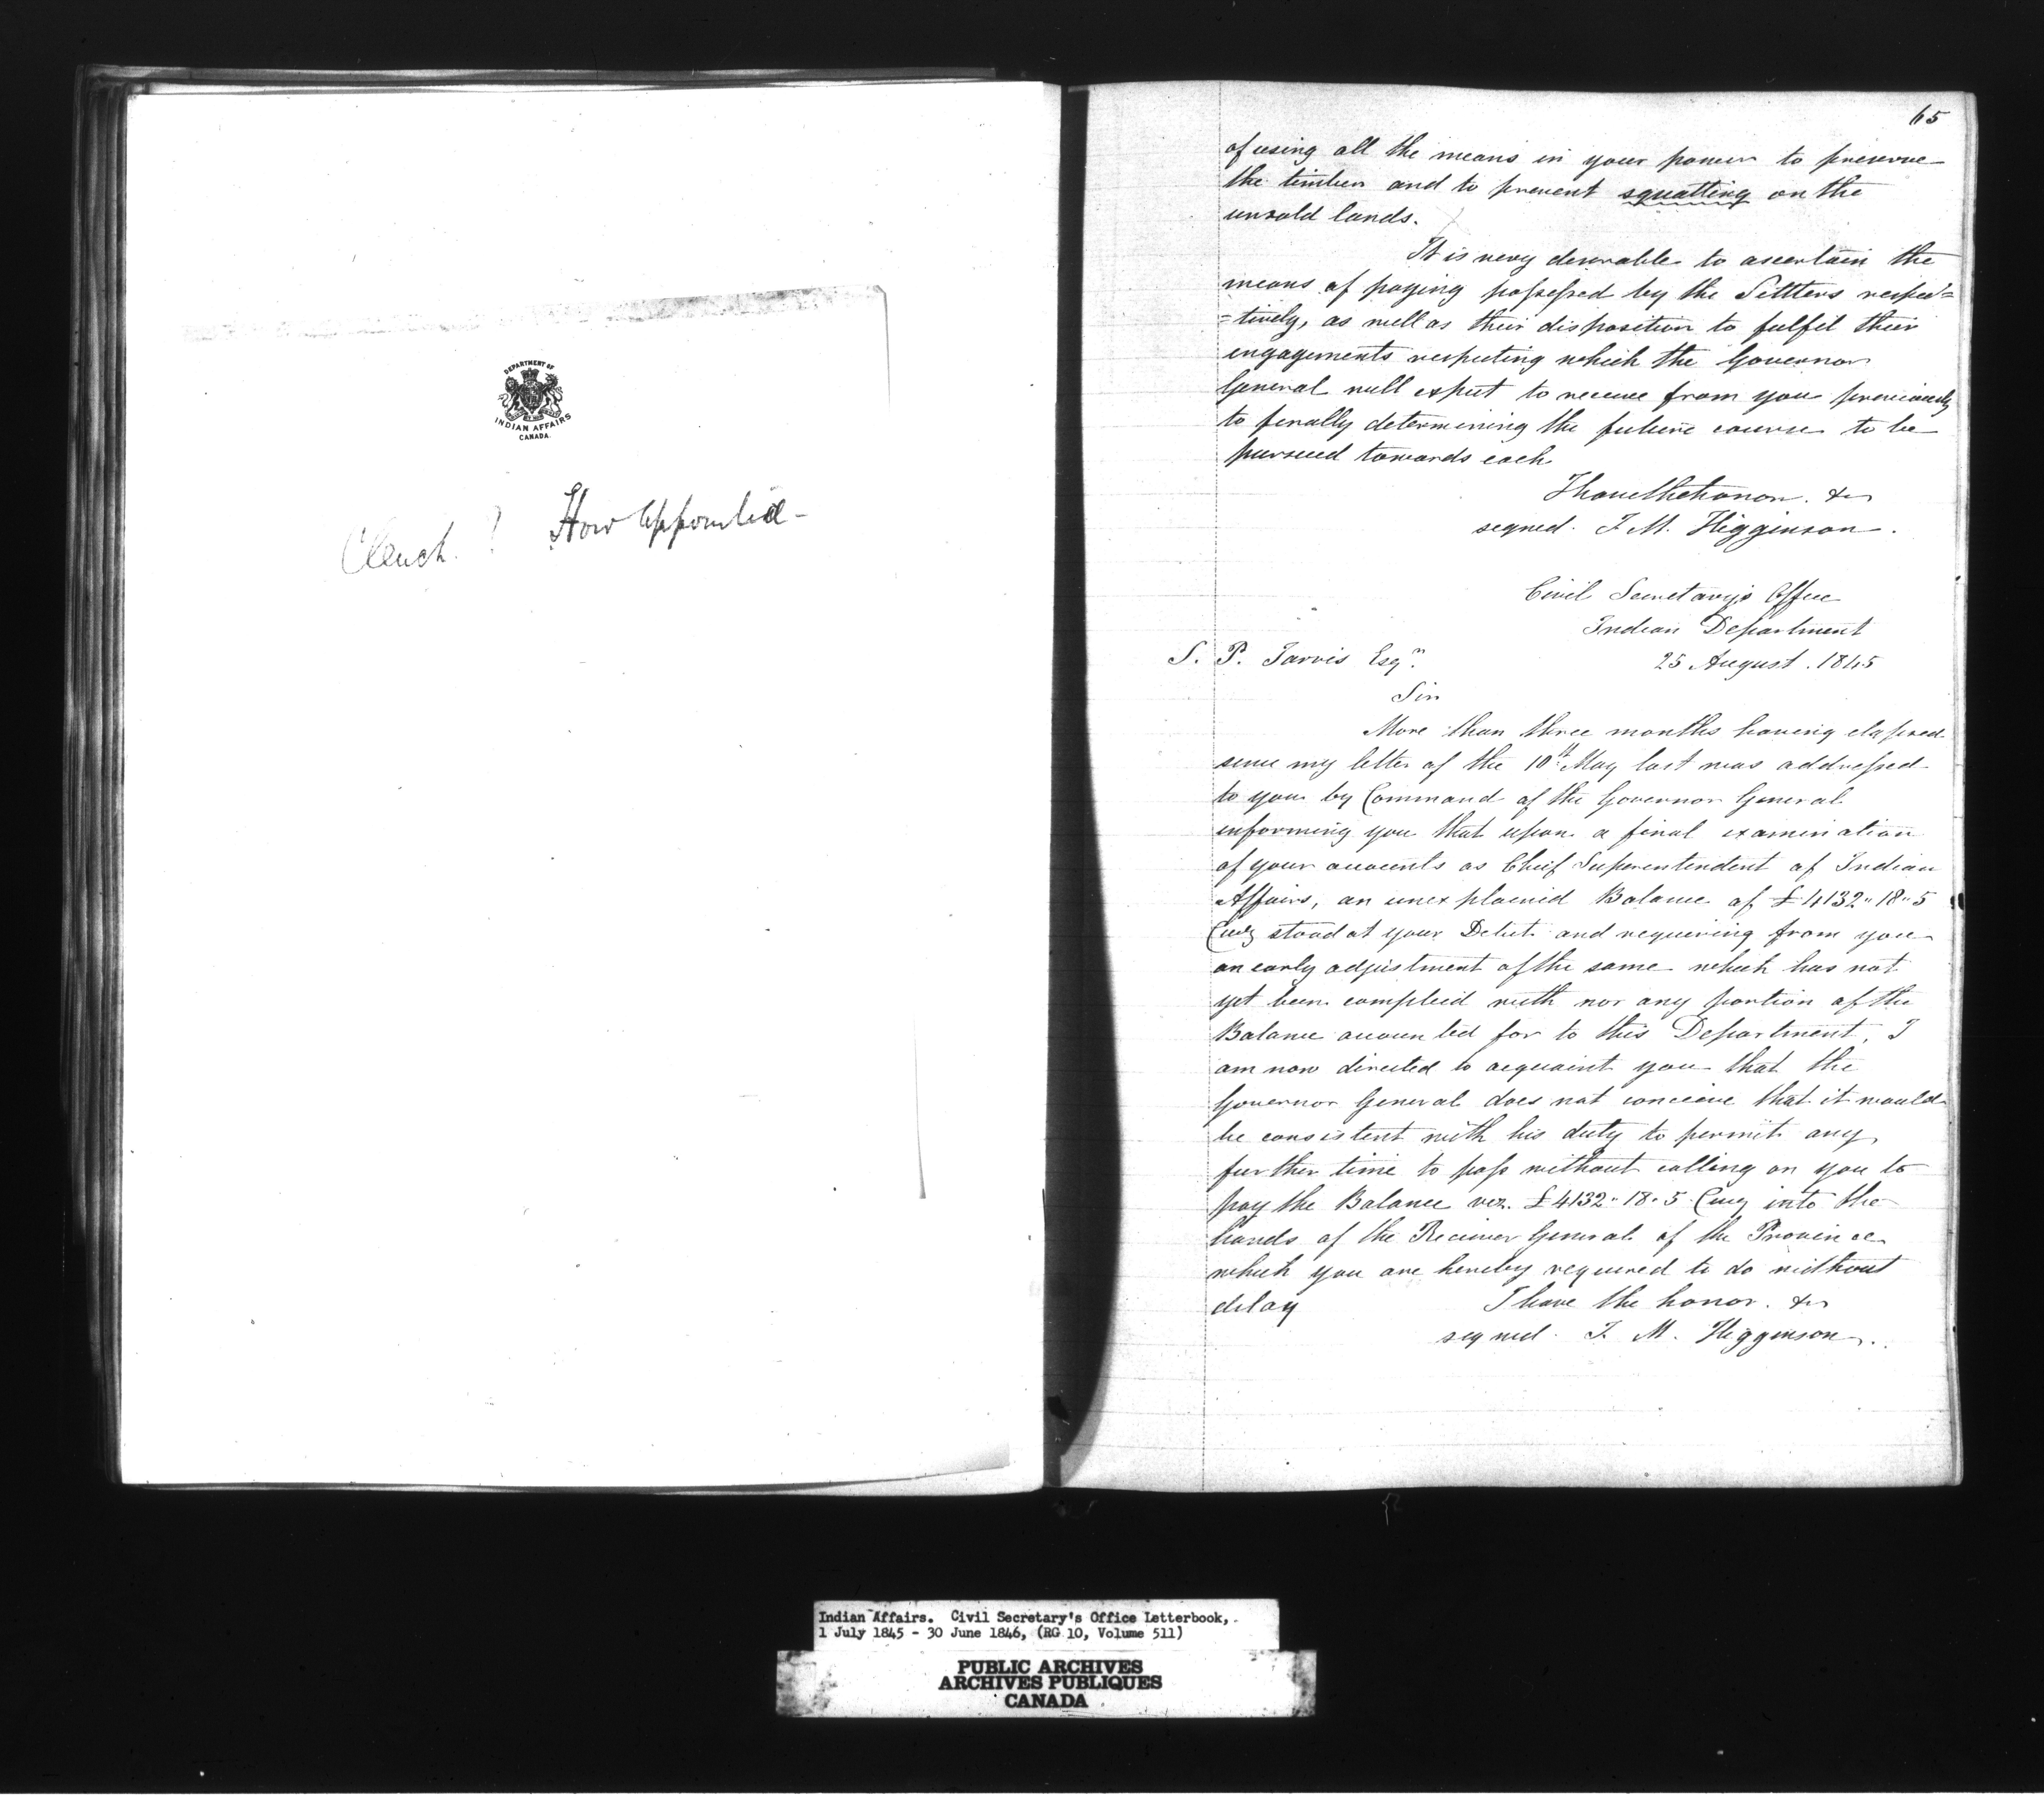 DEPARTMENT OF
INDIAN AFFAIRS
CANADA
Clench. ! How Appointed -
65
of using all the means in your power to preserve
the timber and to prevent squatting on the
unsold lands.
It is very desirable to ascertain the
means of paying possessed by the Settlers respec=
=tively, as well as their disposition to fulfil their
engagements respecting which the Governor
General will expect to receive from you previously
to finally determining the future course to be
pursued towards each
I have the honor. &c
signed. J. M. Higginson.
Civil Secretary's Office
Indian Department
25 August. 1845
S. P. Jarvis Esqr.
Sir
More than three months having elapsed
since my letter of the 10th May last was addressed
to you by Command of the Governor General
informing you that upon a final examination
of your accounts as Chief Superintendent of Indian
Affairs, an unexplained Balance of £4132"18"5
Cucy stood at your Debit and requiring from you
an early adjustment of the same which has not
yet been complied with nor any portion of the
Balance accounted for to this Department, I
am now directed to acquaint you that the
Governor General does not conceive that it would
be consistent with his duty to permit any
further time to pass without calling on you to
pay the Balance viz. £4132"18"5 Cucy into the
hands of the Receiver General of the Province
which you are hereby required to do without
delay
I have the honor. &c
signed. J. M. Higginson.
Indian Affairs. Civil Secretary's Office Letterbook,
1 July 1845 - 30 June 1846, (RG 10, Volume 511)
PUBLIC ARCHIVES
ARCHIVES PUBLIQUES
CANADA